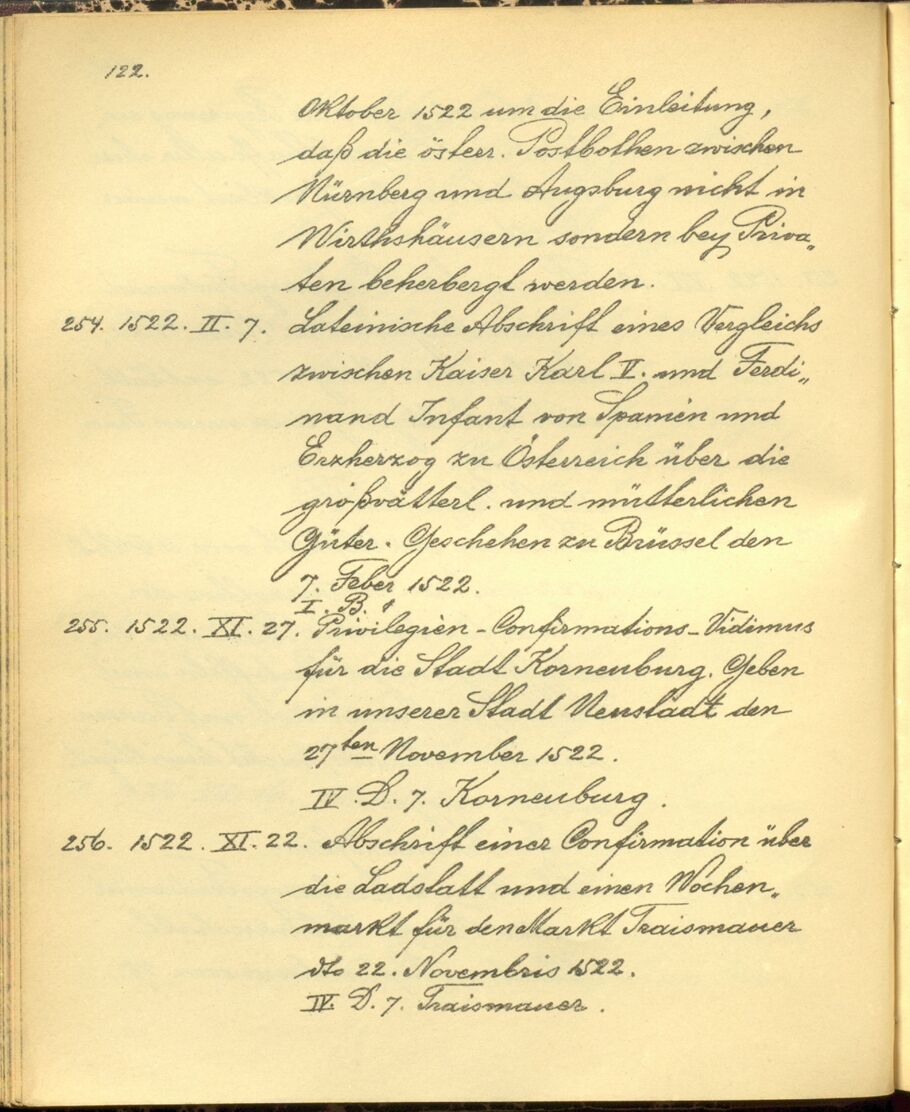 122.
Oktober 1522 um die Einleitung,
daß die österr. Postbothen zwischen
Nürnberg und Augsburg nicht in
Wirthshäusern sondern bey Priva„
ten beherbergt werden.
254. 1522. II. 7. Lateinische Abschrift eines Vergleichs
zwischen Kaiser Karl V. und Ferdi„
nand Infant von Spanien und
Erzherzog zu Österreich über die
großvätterl. und mütterlichen
Güter. Geschehen zu Brüssel den
7. Feber 1522.
I. B. 1
255. 1522. XI. 27. Privilegien-Confirmations-Vidimus
für die Stadt Korneuburg. Geben
in unserer Stadt Neustadt den
27ten November 1522.
IV. D. 7. Korneuburg.
256. 1522. XI. 22. Abschrift einer Confirmation über
die Ladstatt und einen Wochen„
markt für den Markt Traismauer
dto 22. Novembris 1522.
IV. D. 7. Traismauer.